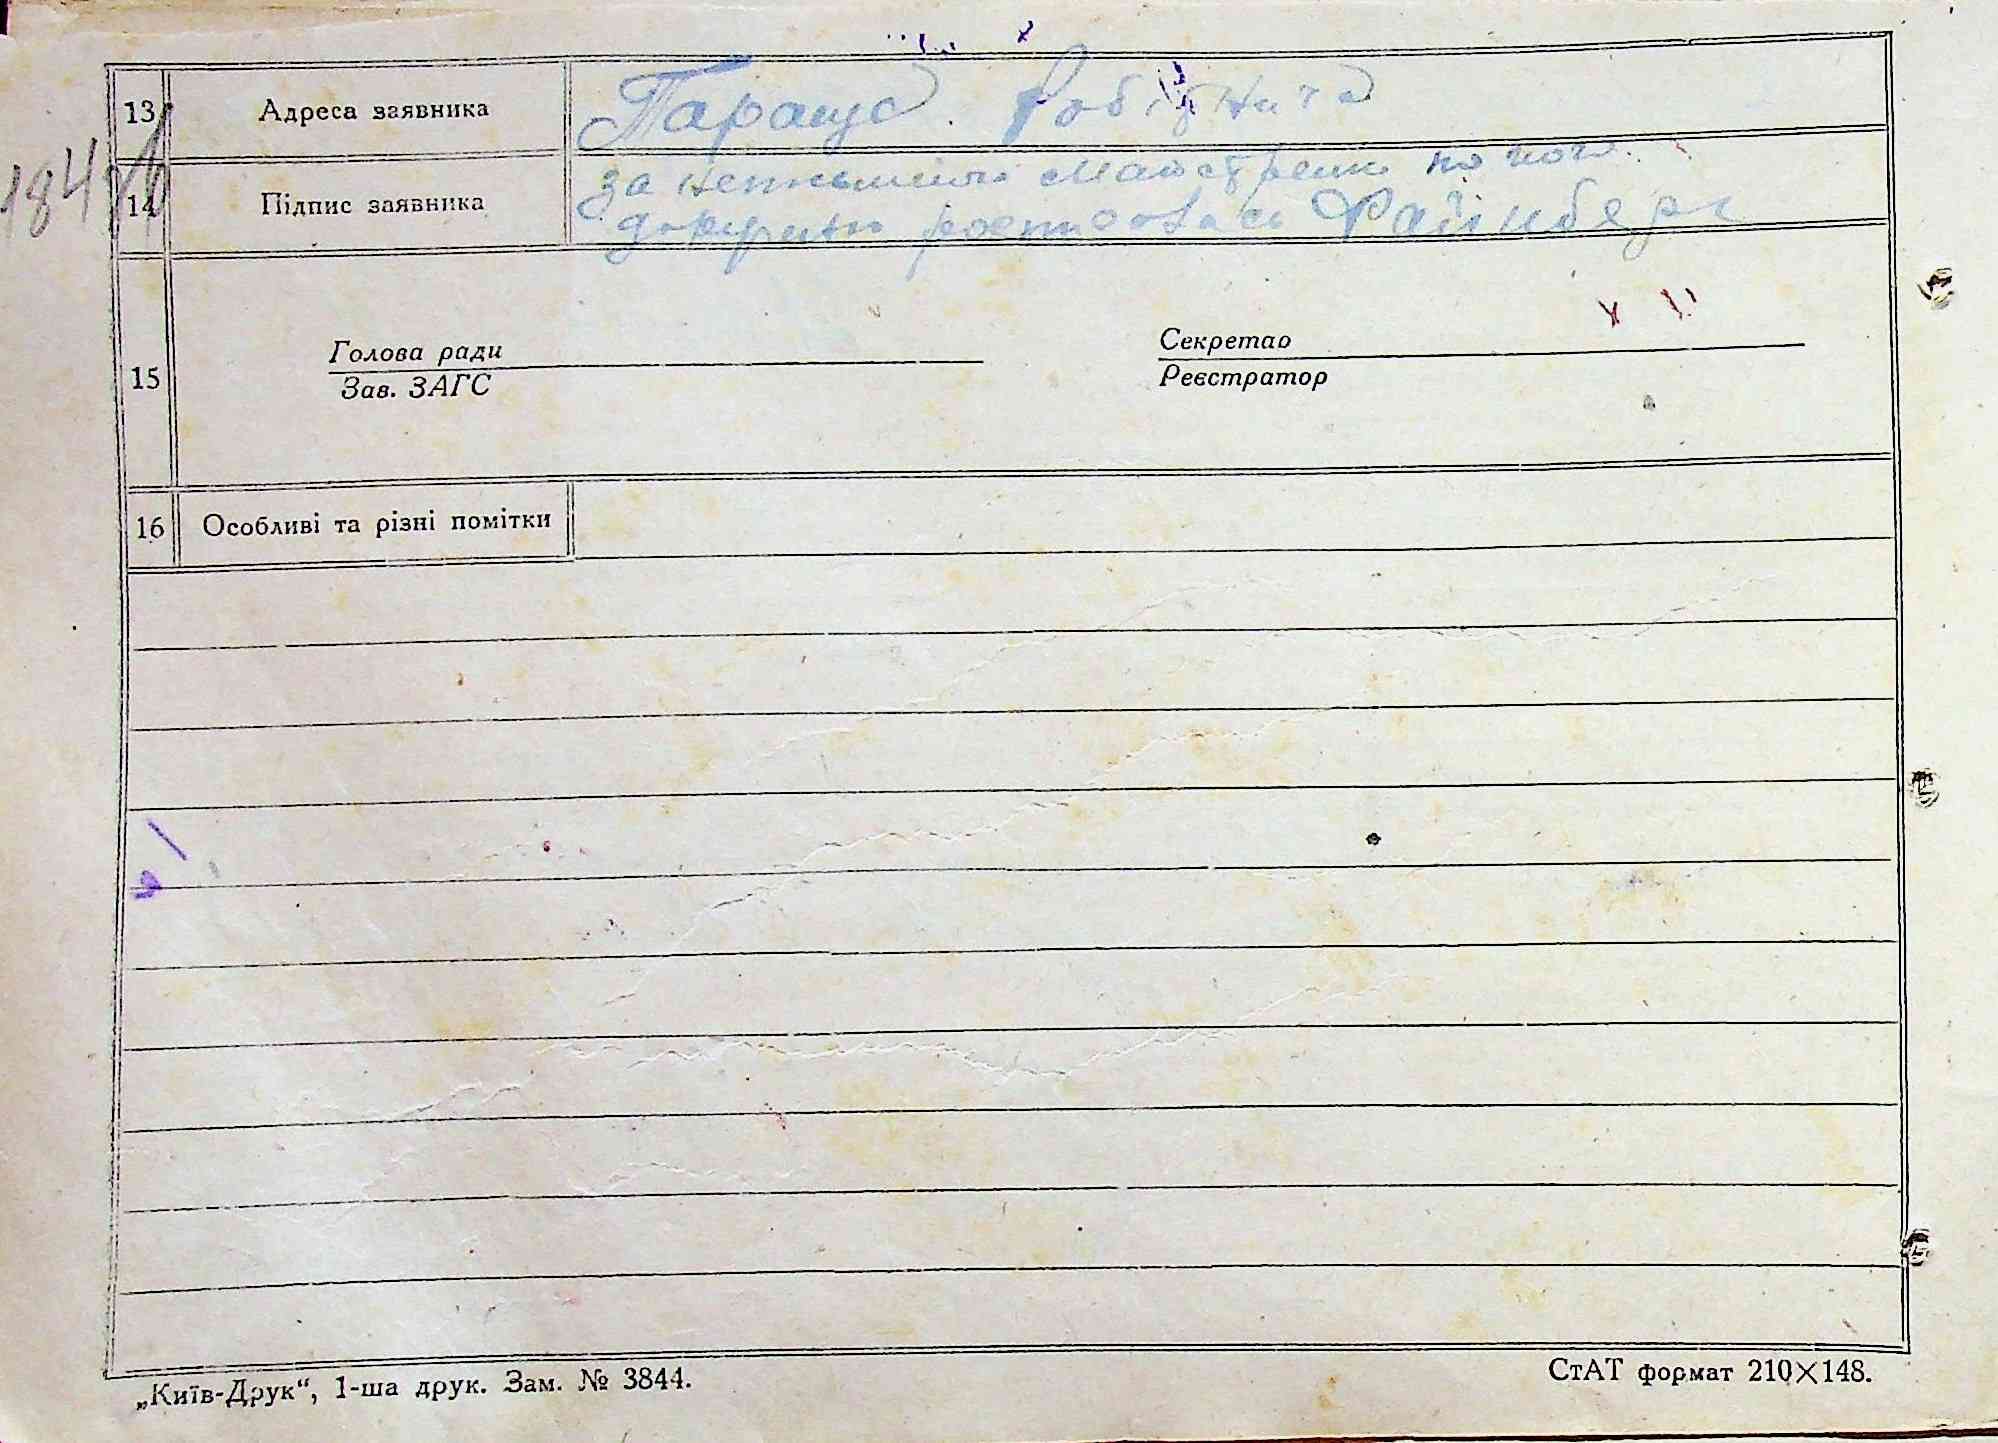 13 Адреса заявника Таращ. робітнича
184
14 Підпис заявника за неписьмен Майстренко по його
доручен розписалась Файнберг
Голова ради Секретар
15 Зав. ЗАГС Реєстратор
16 Особливі та різні помітки
„Київ-Друк“, 1-ша друк. Зам. № 3844. СтАТ формат 210×148.